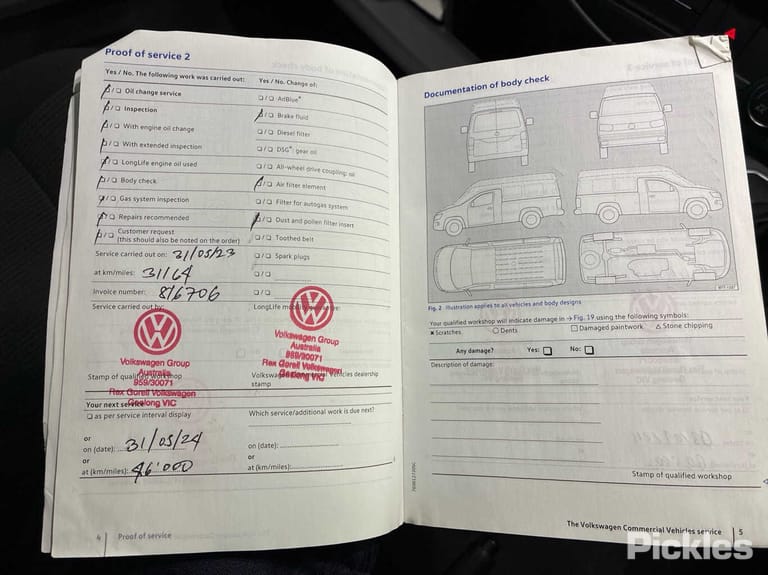 Proof of service 2
Yes / No. The following work was carried out:
☐/☐ Oil change service
☐/☐ Inspection
☐/☐ With engine oil change
☐/☐ With extended inspection
☐/☐ LongLife engine oil used
☐/☐ Body check
☐/☐ Gas system inspection
☐/☐ Repairs recommended
☐/☐ Customer request
(this should also be noted on the order)
Service carried out on: 31/05/23
at km/miles: 31164
Invoice number: 816706
Service carried out by:
Volkswagen Group
Australia
959/30071
Rex Gorell Volkswagen
Geelong VIC
Stamp of qualified workshop
Your next service
☐ as per service interval display
or
on (date): 31/05/24
or
at (km/miles): 46'000
4 Proof of service
Yes / No. Change of:
☐/☐ AdBlue®
☐/☐ Brake fluid
☐/☐ Diesel filter
☐/☐ DSG®: gear oil
☐/☐ All-wheel drive coupling: oil
☐/☐ Air filter element
☐/☐ Filter for autogas system
☐/☐ Dust and pollen filter insert
☐/☐ Toothed belt
☐/☐ Spark plugs
☐/☐
☐/☐
LongLife
Volkswagen Group
Australia
959/30071
Rex Gorell Volkswagen
Geelong VIC
Vehicles dealership
stamp
Which service/additional work is due next?
on (date):
or
at (km/miles):
Documentation of body check
Fig. 2 Illustration applies to all vehicles and body designs
Your qualified workshop will indicate damage in → Fig. 19 using the following symbols:
× Scratches ○ Dents ☐ Damaged paintwork △ Stone chipping
Any damage? Yes: ☐ No: ☐
Description of damage:
Stamp of qualified workshop
The Volkswagen Commercial Vehicles service 5
Pickles